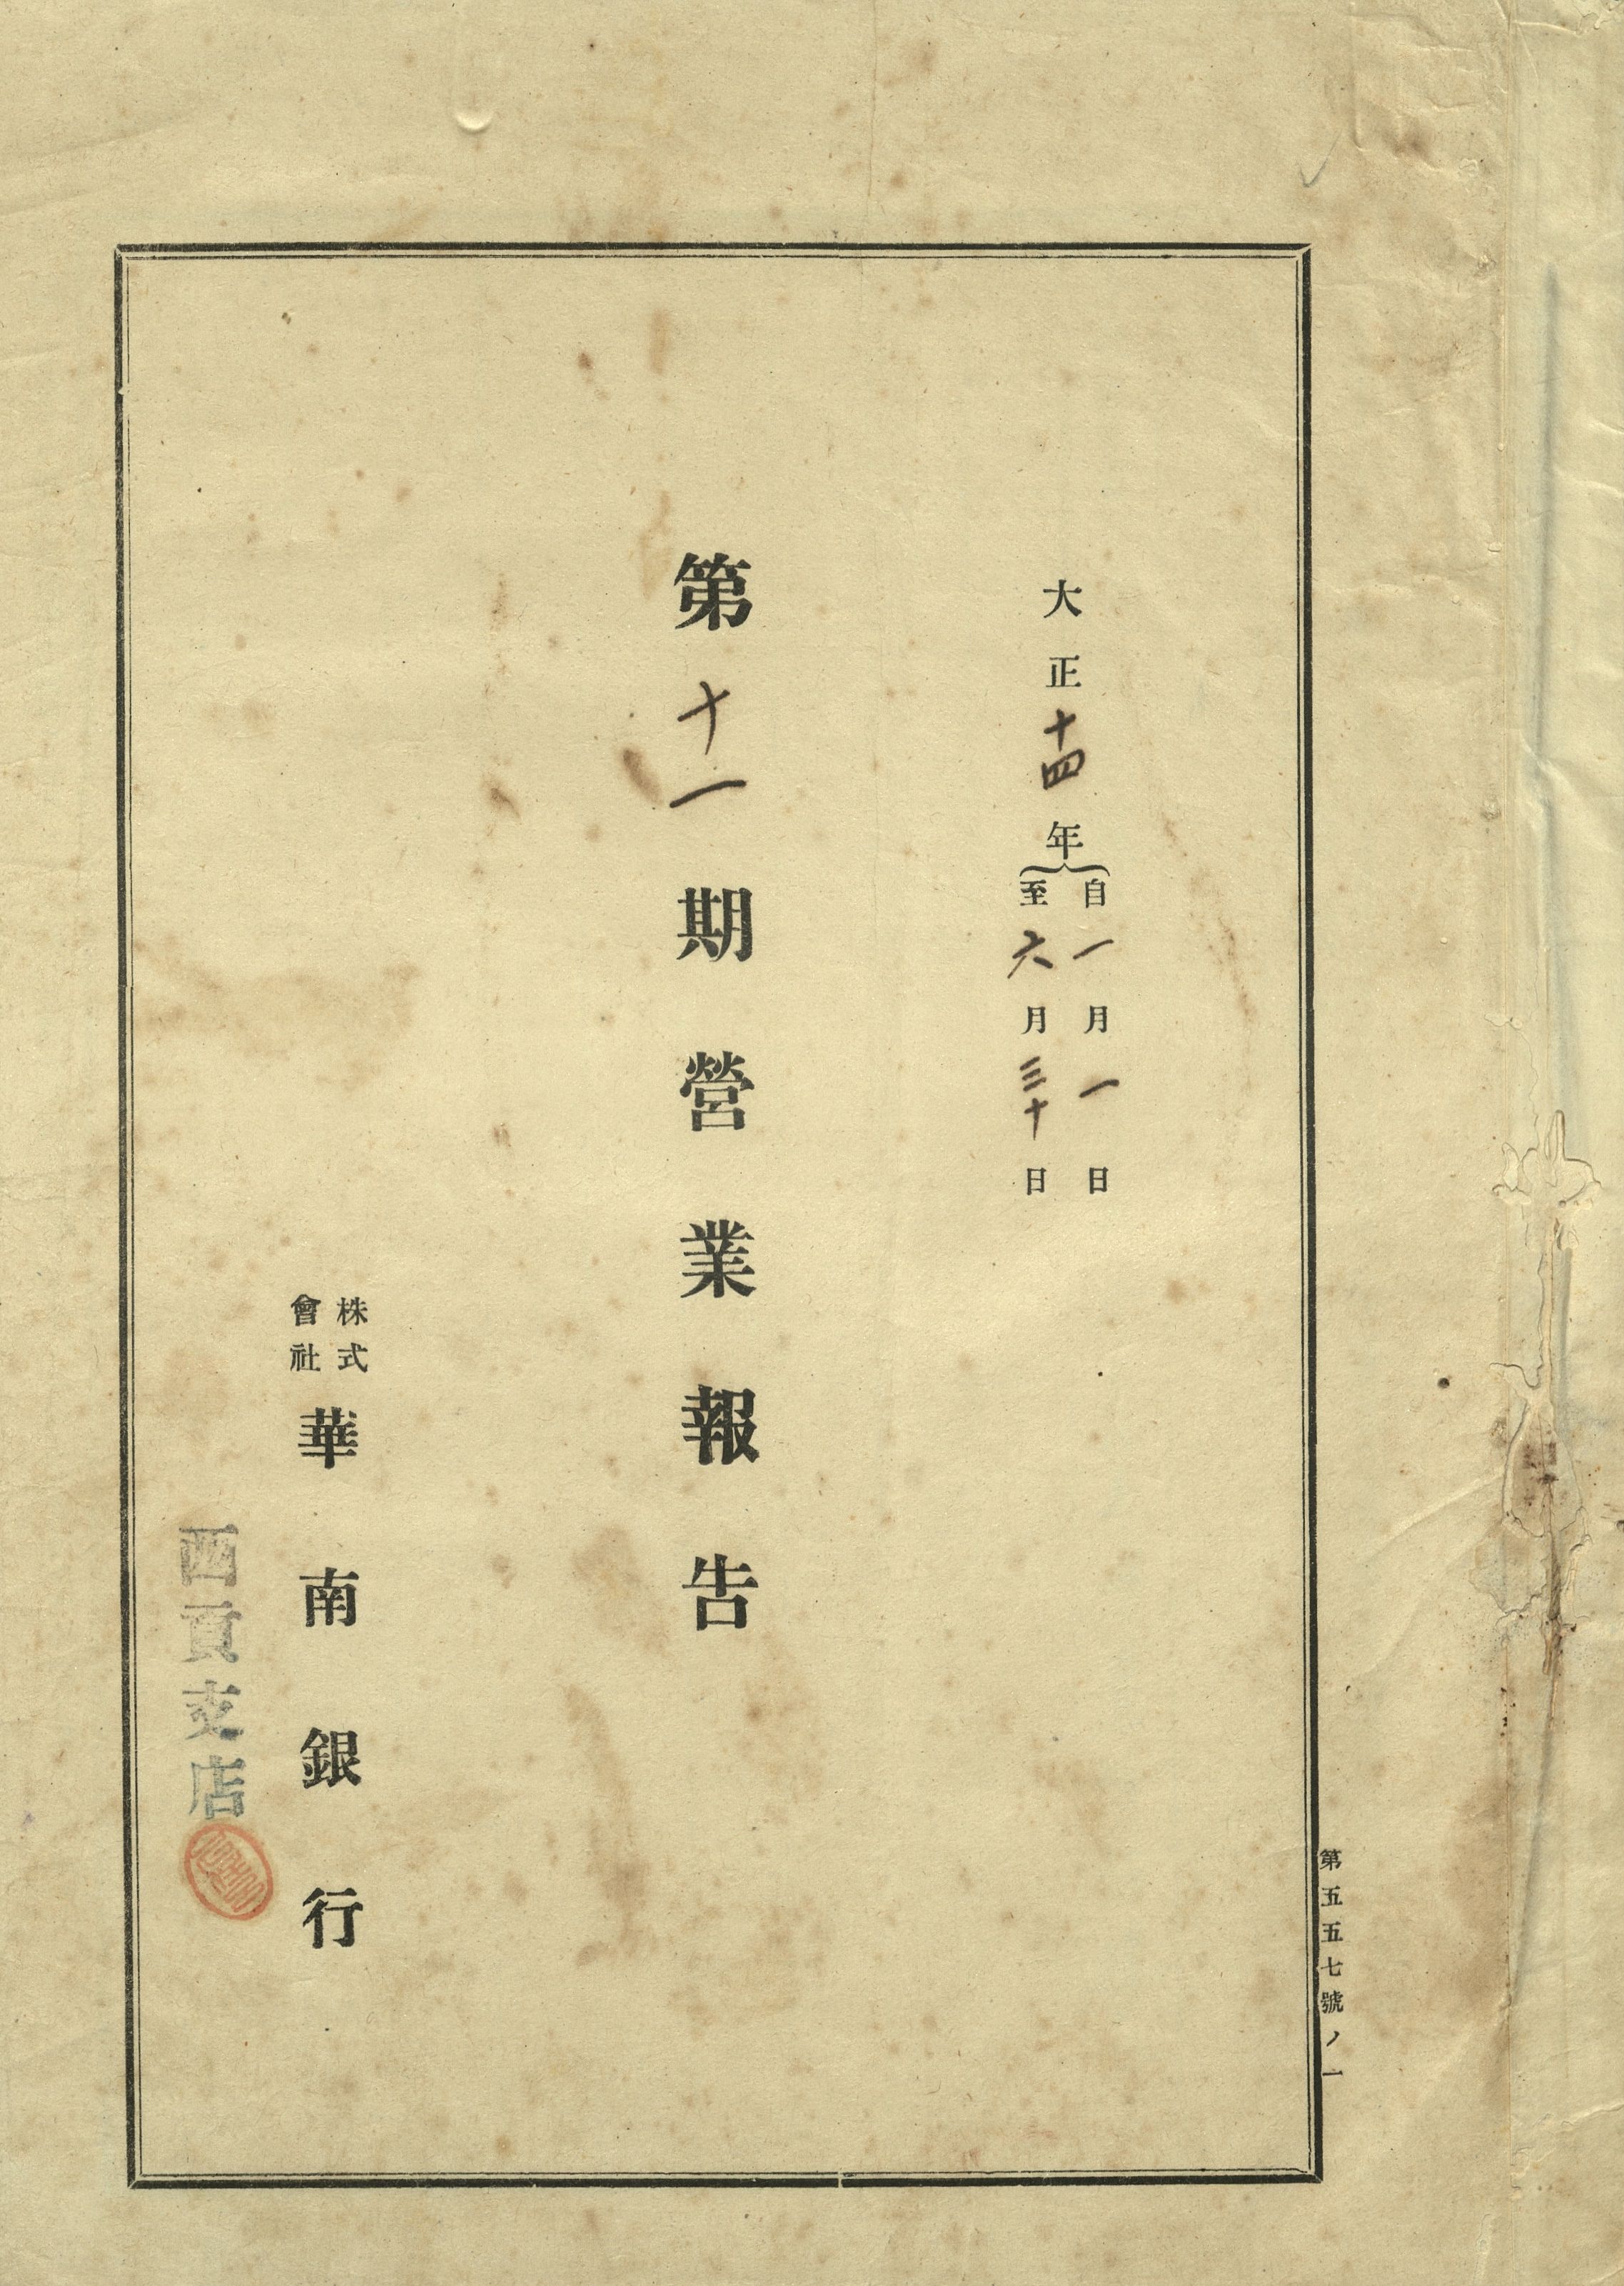 第五五七號ノ一
大正十四年
自一月一日
至六月三十日
第十一期營業報告
株式
會社
華南銀行
西貢支店